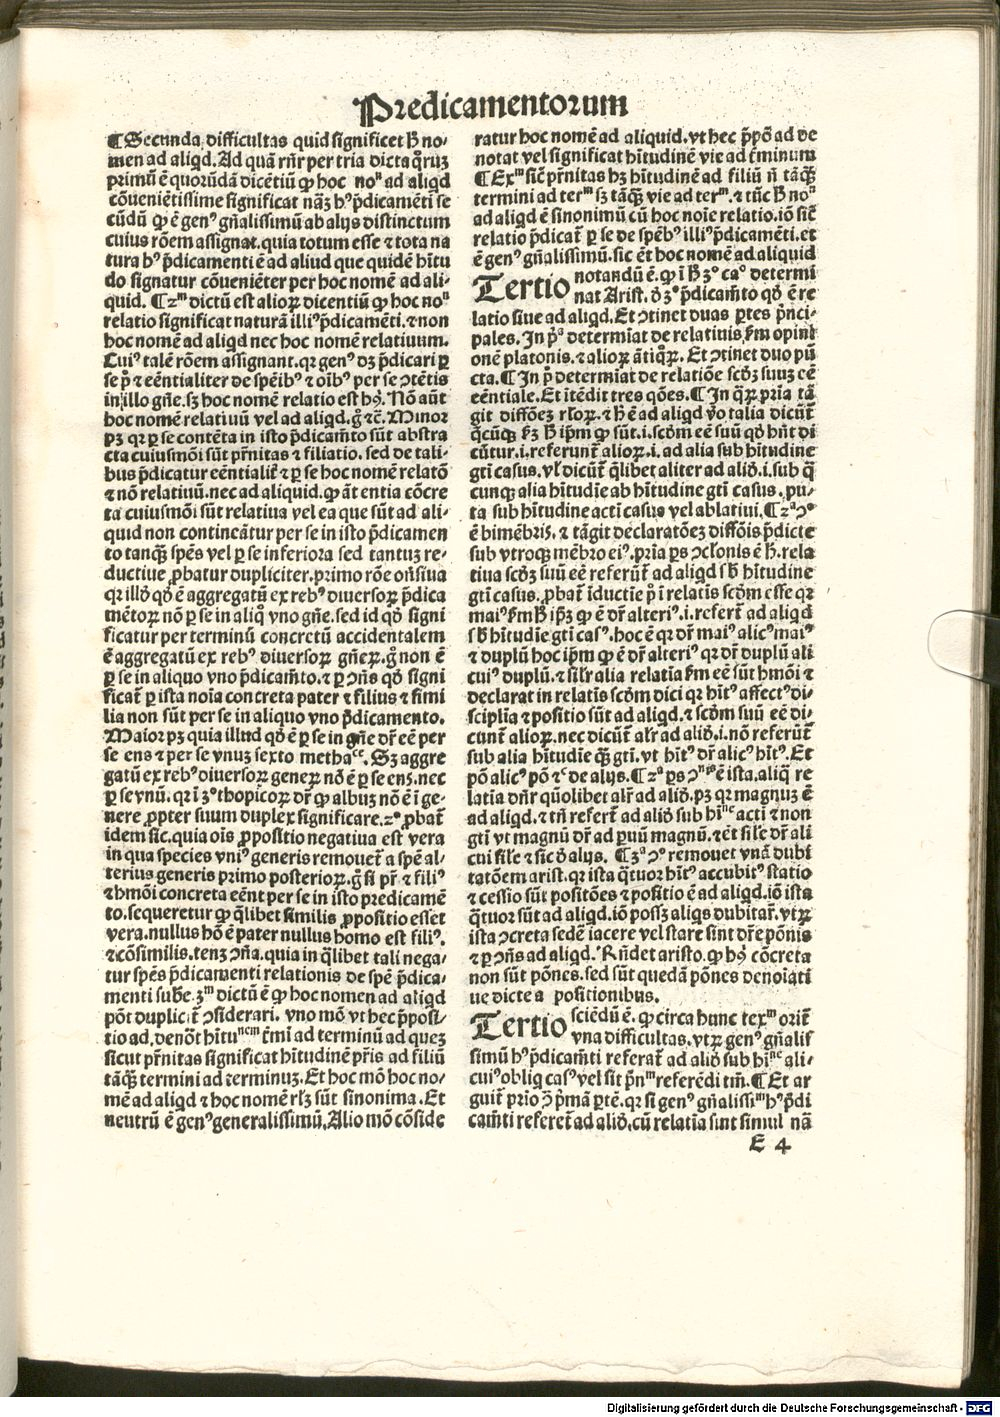 Predicamentorum
¶Secunda difficultas quid significet h̄ no⸗
men ad aliqd. Ad quā rn̄r per tria dicta q̊rūꝫ
primū ē quorūdā dicētiū ꝙ hoc noⁿ ad aliqd
cōueniētissime significat nāꝫ hꝰ p̄dicamēti se
cūdū ꝙ ē genꝰ gn̄alissimū ab alijs distinctum
cuius rōem assignat. quia totum esse ⁊ tota na
tura hꝰ p̄dicamenti ē ad aliud que quidē hītu
do signatur cōueniēter per hoc nomē ad ali⸗
quid. ¶2ᵐ dictū est alioꝝ dicentiū ꝙ hoc noⁿ
relatio significat naturā illiꝰ p̄dicamēti. ⁊ non
hoc nomē ad aliqd nec hoc nomē relatiuum.
Cuiꝰ talē rōem assignant. qꝛ genꝰ dꝫ p̄dicari ꝑ
se pᵒ ⁊ eēntialiter de spēibꝰ ⁊ oībꝰ per se ↄtētis
in illo gn̄e. sꝫ hoc nomē relatio est hꝰ. Nō aūt
hoc nomē relatiuū vel ad aliqd. g̊ ⁊c̄. Minor
pꝫ qꝛ ꝑ se contēta in isto p̄dicam̄to sūt abstra
cta cuiusmōi sūt pr̄nitas ⁊ filiatio. sed de tali⸗
bus p̄dicatur eēntialit̄ ⁊ ꝑ se hoc nomē relatō
⁊ nō relatiuū. nec ad aliquid. ꝙ āt entia cōcre
ta cuiusmōi sūt relatiua vel ea que sūt ad ali⸗
quid non contineātur per se in isto p̄dicamen
to tanqꝫ spēs vel ꝑ se inferiora sed tantuꝫ re⸗
ductiue ꝓbatur dupliciter. primo rōe on̄siua
qꝛ illđ qđ ē aggregatū ex rebꝰ diuersoꝝ p̄dica
mētoꝝ nō ꝑ se in aliq̊ vno gn̄e. sed id qđ signi
ficatur per terminū concretū accidentalem
ē aggregatū ex rebꝰ diuersoꝝ gn̄eꝝ. g̊ non ē
ꝑ se in aliquo vno p̄dicam̄to. ⁊ ꝑ ↄn̄s qđ signi
ficat̄ ꝑ ista noīa concreta pater ⁊ filius ⁊ simi
lia non sūt per se in aliquo vno p̄dicamento.
Maior pꝫ quia illud qđ ē ꝑ se in gn̄e dr̄ eē per
se ens ⁊ per se vnuꝫ sexto methaᶜᵉ. Sꝫ aggre
gatū ex rebꝰ diuersoꝝ geneꝝ nō ē ꝑ se ens. nec
ꝑ se vnū. qꝛ ī 3ᵒ thopicoꝝ dr̄ ꝙ albuꝫ nō ē ī ge⸗
nere ꝓpter suum duplex significare. 2ᵒ ꝓbat̄
idem sic. quia oīs ꝓpositio negatiua est vera
in qua species vniꝰ generis remouet̄ a spē al⸗
terius generis primo posterioꝝ. g̊ si pr̄ ⁊ filiꝰ
⁊ hmōi concreta eēnt per se in isto predicamē
to. sequeretur ꝙ q̄libet similis ꝓpositio esset
vera. nullus hō ē pater nullus homo est filiꝰ.
⁊ cōsimilis. tenꝫ ↄn̄a. quia in q̄libet tali nega⸗
tur spēs p̄dicamenti relationis de spē p̄dica⸗
menti sub̄e. 3ᵐ dictū ē ꝙ hoc nomen ad aliqd
pōt duplicit̄ ↄsiderari. vno mō vt hec p̄posi⸗
tio ad. denōt hītuⁿᵉᵐ t̄mī ad terminū ad queꝫ
sicut pr̄nitas significat hītudinē pr̄is ad filiū
tāqꝫ termini ad terminuꝫ. Et hoc mō hoc no⸗
mē ad aliqd ⁊ hoc nomē rlꝫ sūt sinonima. Et
neutrū ē genꝰ generalissimū. Alio mō cōside
ratur hoc nomē ad aliquid. vt hec p̄pō ad de
notat vel significat hītudinē vie ad t̄minum
¶Exᵐ sic̄ pr̄nitas hꝫ hītudinē ad filiū n̄ tāqꝫ
termini ad terᵐ sꝫ tāqꝫ vie ad terᵐ. ⁊ tūc h̄ noⁿ
ad aliqd ē sinonimū cū hoc noīe relatio. iō sic̄
relatio p̄dicat̄ ꝑ se de spēbꝰ illiꝰ p̄dicamēti. et
ē genꝰ gn̄alissimū. sic ēt hoc nomē ad aliquid
Tertio notandū ē. ꝙ ī h̄ 3ᵒ caᵒ determi
nat Arist. đ 3ᵒ p̄dicam̄to qđ ē re
latio siue ad aliqd. Et ↄtinet duas ꝑtes p̄nci⸗
pales. In pᵃ determīat de relatiuis fm̄ opini
onē platonis. ⁊ alioꝝ ātiq̊ꝝ. Et ↄtinet duo pū
cta. ¶In pᵒ determīat de relatiōe scđꝫ suuꝫ eē
eēntiale. Et itēdit tres q̄ōes. ¶In q̊ꝝ pria tā
git diffōeꝫ rl̄oꝝ. ⁊ h̄ ē ad aliqd v̄o talia dicūt̄
q̄cūqꝫ h̄ꝫ h̄ ip̄m ꝙ sūt. i. scđm eē suū qđ hn̄t di
cūtur. i. referunt̄ alioꝝ. i. ad alia sub hītudine
gtī casus. vl̄ dicūt̄ q̄libet aliter ad aliđ. i. sub q̄
cunqꝫ alia hītudīe ab hītudine gtī casus. pu⸗
ta sub hītudine actī casus vel ablatiui. ¶2ᵃ ↄᵒ
ē bimēbris. ⁊ tāgit declaratōeꝫ diffōis p̄dicte
sub vtroqꝫ mēbro eiꝰ. pria ꝑs ↄcl̄onis ē h̄. rela
tiua scđꝫ suū eē referūt̄ ad aliqd sb̄ hītudine
gtī casus. ꝓbat̄ iductīe pᵒ ī relatis scđm esse qꝛ
maiꝰ fm̄ h̄ ip̄ꝫ ꝙ ē dr̄ alteriꝰ. i. refert̄ ad aliqd
sb̄ hītudīe gtī casꝰ. hoc ē qꝛ dr̄ maiꝰ alicꝰ maiꝰ
⁊ duplū hoc ip̄m ꝙ ē dr̄ alteriꝰ qꝛ dr̄ duplū ali
cuiꝰ duplū. ⁊ silr̄ alia relatīa fm̄ eē sūt hmōi ⁊
declarat in relatis scđm dici qꝛ hītꝰ affectꝰ di⸗
sciplīa ⁊ positio sūt ad aliqd. ⁊ scđm suū eē di⸗
cunt̄ alioꝝ. nec dicūt̄ alr̄ ad aliđ. i. nō referūt̄
sub alia hītudīe qꝫ gtī. vt hītꝰ dr̄ alicꝰ hītꝰ. Et
pō alicꝰ pō ⁊c̄ de alijs. ¶2ᵃ ꝑs ē ista. aliq̄ re
latīa dn̄r quōlibet alr̄ ad aliđ. pꝫ qꝛ magnuꝫ ē
ad aliqd. ⁊ tn̄ refert̄ ad aliđ sub hīⁿᵉ acti ⁊ non
gtī vt magnū dr̄ ad ꝑuū magnū. ⁊ ēt sil̄e dr̄ ali
cui sil̄e ⁊ sic đ alijs. ¶3ᵃ ↄᵒ remouet vnā dubi
tatōem arist. qꝛ ista q̄tuor hītꝰ accubitꝰ statio
⁊ cessio sūt positōes ⁊ positio ē ad aliqd. iō ista
q̄tuor sūt ad aliqd. iō possꝫ aliqs dubitar̄. vtꝝ
ista ↄcreta sedē iacere vel stare sint dr̄e pōnis
⁊ ꝑ ↄn̄s ad aliqd. Rn̄det aristo. ꝙ hꝰ cōcreta
non sūt pōnes. sed sūt quedā pōnes denoīati
ue dicte a positionibus.
Tertio sciēdū ē. ꝙ circa hunc texᵐ orit̄
vna difficultas. vtꝝ genꝰ gn̄alis
simū hꝰ p̄dicam̄ti referat̄ ad aliđ sub hīⁿᵉ ali⸗
cuiꝰ obliq casꝰ vel sit pn̄ᵐ referēdi tm̄. ¶Et ar
guit̄ prio ↄ̄ p̄mā ꝑtē. qꝛ si genꝰ gn̄alissiᵐ hꝰ p̄di
cam̄ti referet̄ ad aliđ, cū relatīa sint simul nā
E 4
Digitalisierung gefördert durch die Deutsche Forschungsgemeinschaft - DFG